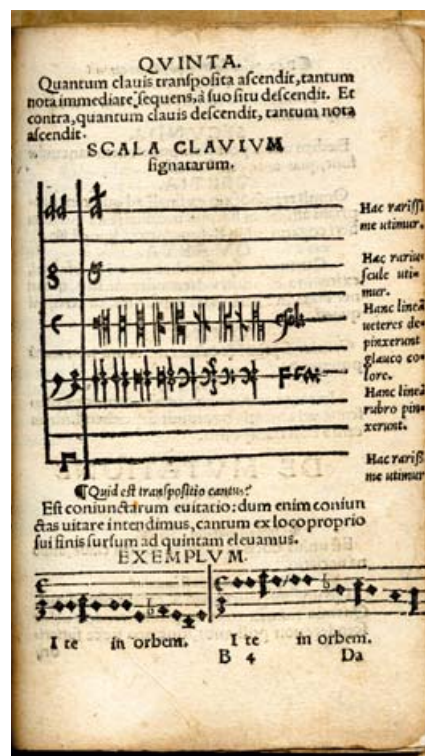 QVINTA.
Quantum clauis transposita ascendit, tantum
nota immediate sequens, à suo situ descendit. Et
contra, quantum clauis descendit, tantum nota
ascendit.
SCALA CLAVIVM
signatarum.
dd d
Hac rarissi
me utimur.
g G
Hac rariu-
scule uti-
mur.
Hanc lineā
ueteres de-
pinxerunt
glauco co-
lore.
Hanc lineā
rubro pin-
xerunt.
Γ
Hac rariss
me utimur
¶Quid est transpositio cantus?
Est coniunctarum euitatio: dum enim coniun
ctas uitare intendimus, cantum ex loco proprio
sui finis sursum ad quintam eleuamus.
EXEMPLVM.
I te in orbem. I te in orbem.
B 4 Da